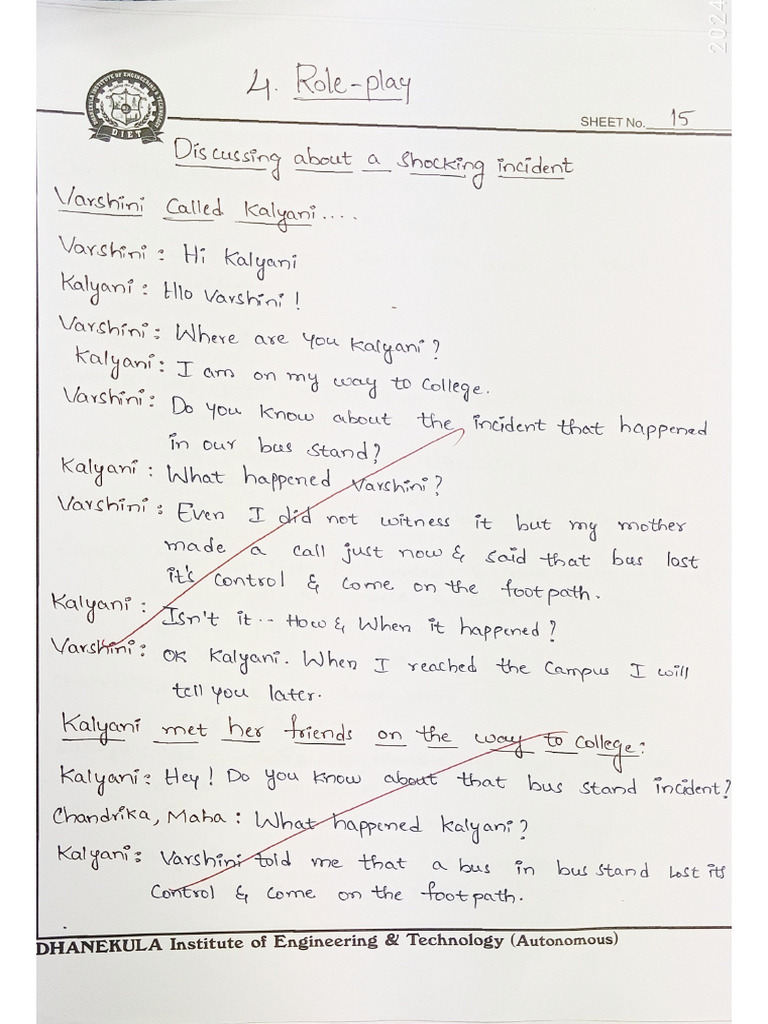 2024
4. Role-play
DHANEKULA INSTITUTE OF ENGINEERING & TECHNOLOGY
DIET
SHEET No. 15
Discussing about a shocking incident
Varshini Called Kalyani....
Varshini : Hi Kalyani
Kalyani : Hlo Varshini !
Varshini : Where are you Kalyani ?
Kalyani : I am on my way to College.
Varshini : Do you know about the incident that happened
in our bus stand?
Kalyani : What happened Varshini ?
Varshini : Even I did not witness it but my mother
made a call just now & said that bus lost
it's control & come on the footpath.
Kalyani : Isn't it .. How & When it happened ?
Varshini : OK Kalyani. When I reached the Campus I will
tell you later.
Kalyani met her friends on the way to College :
Kalyani : Hey ! Do you know about that bus stand incident?
Chandrika, Maha : What happened Kalyani ?
Kalyani : Varshini told me that a bus in bus stand lost its
Control & come on the footpath.
DHANEKULA Institute of Engineering & Technology (Autonomous)